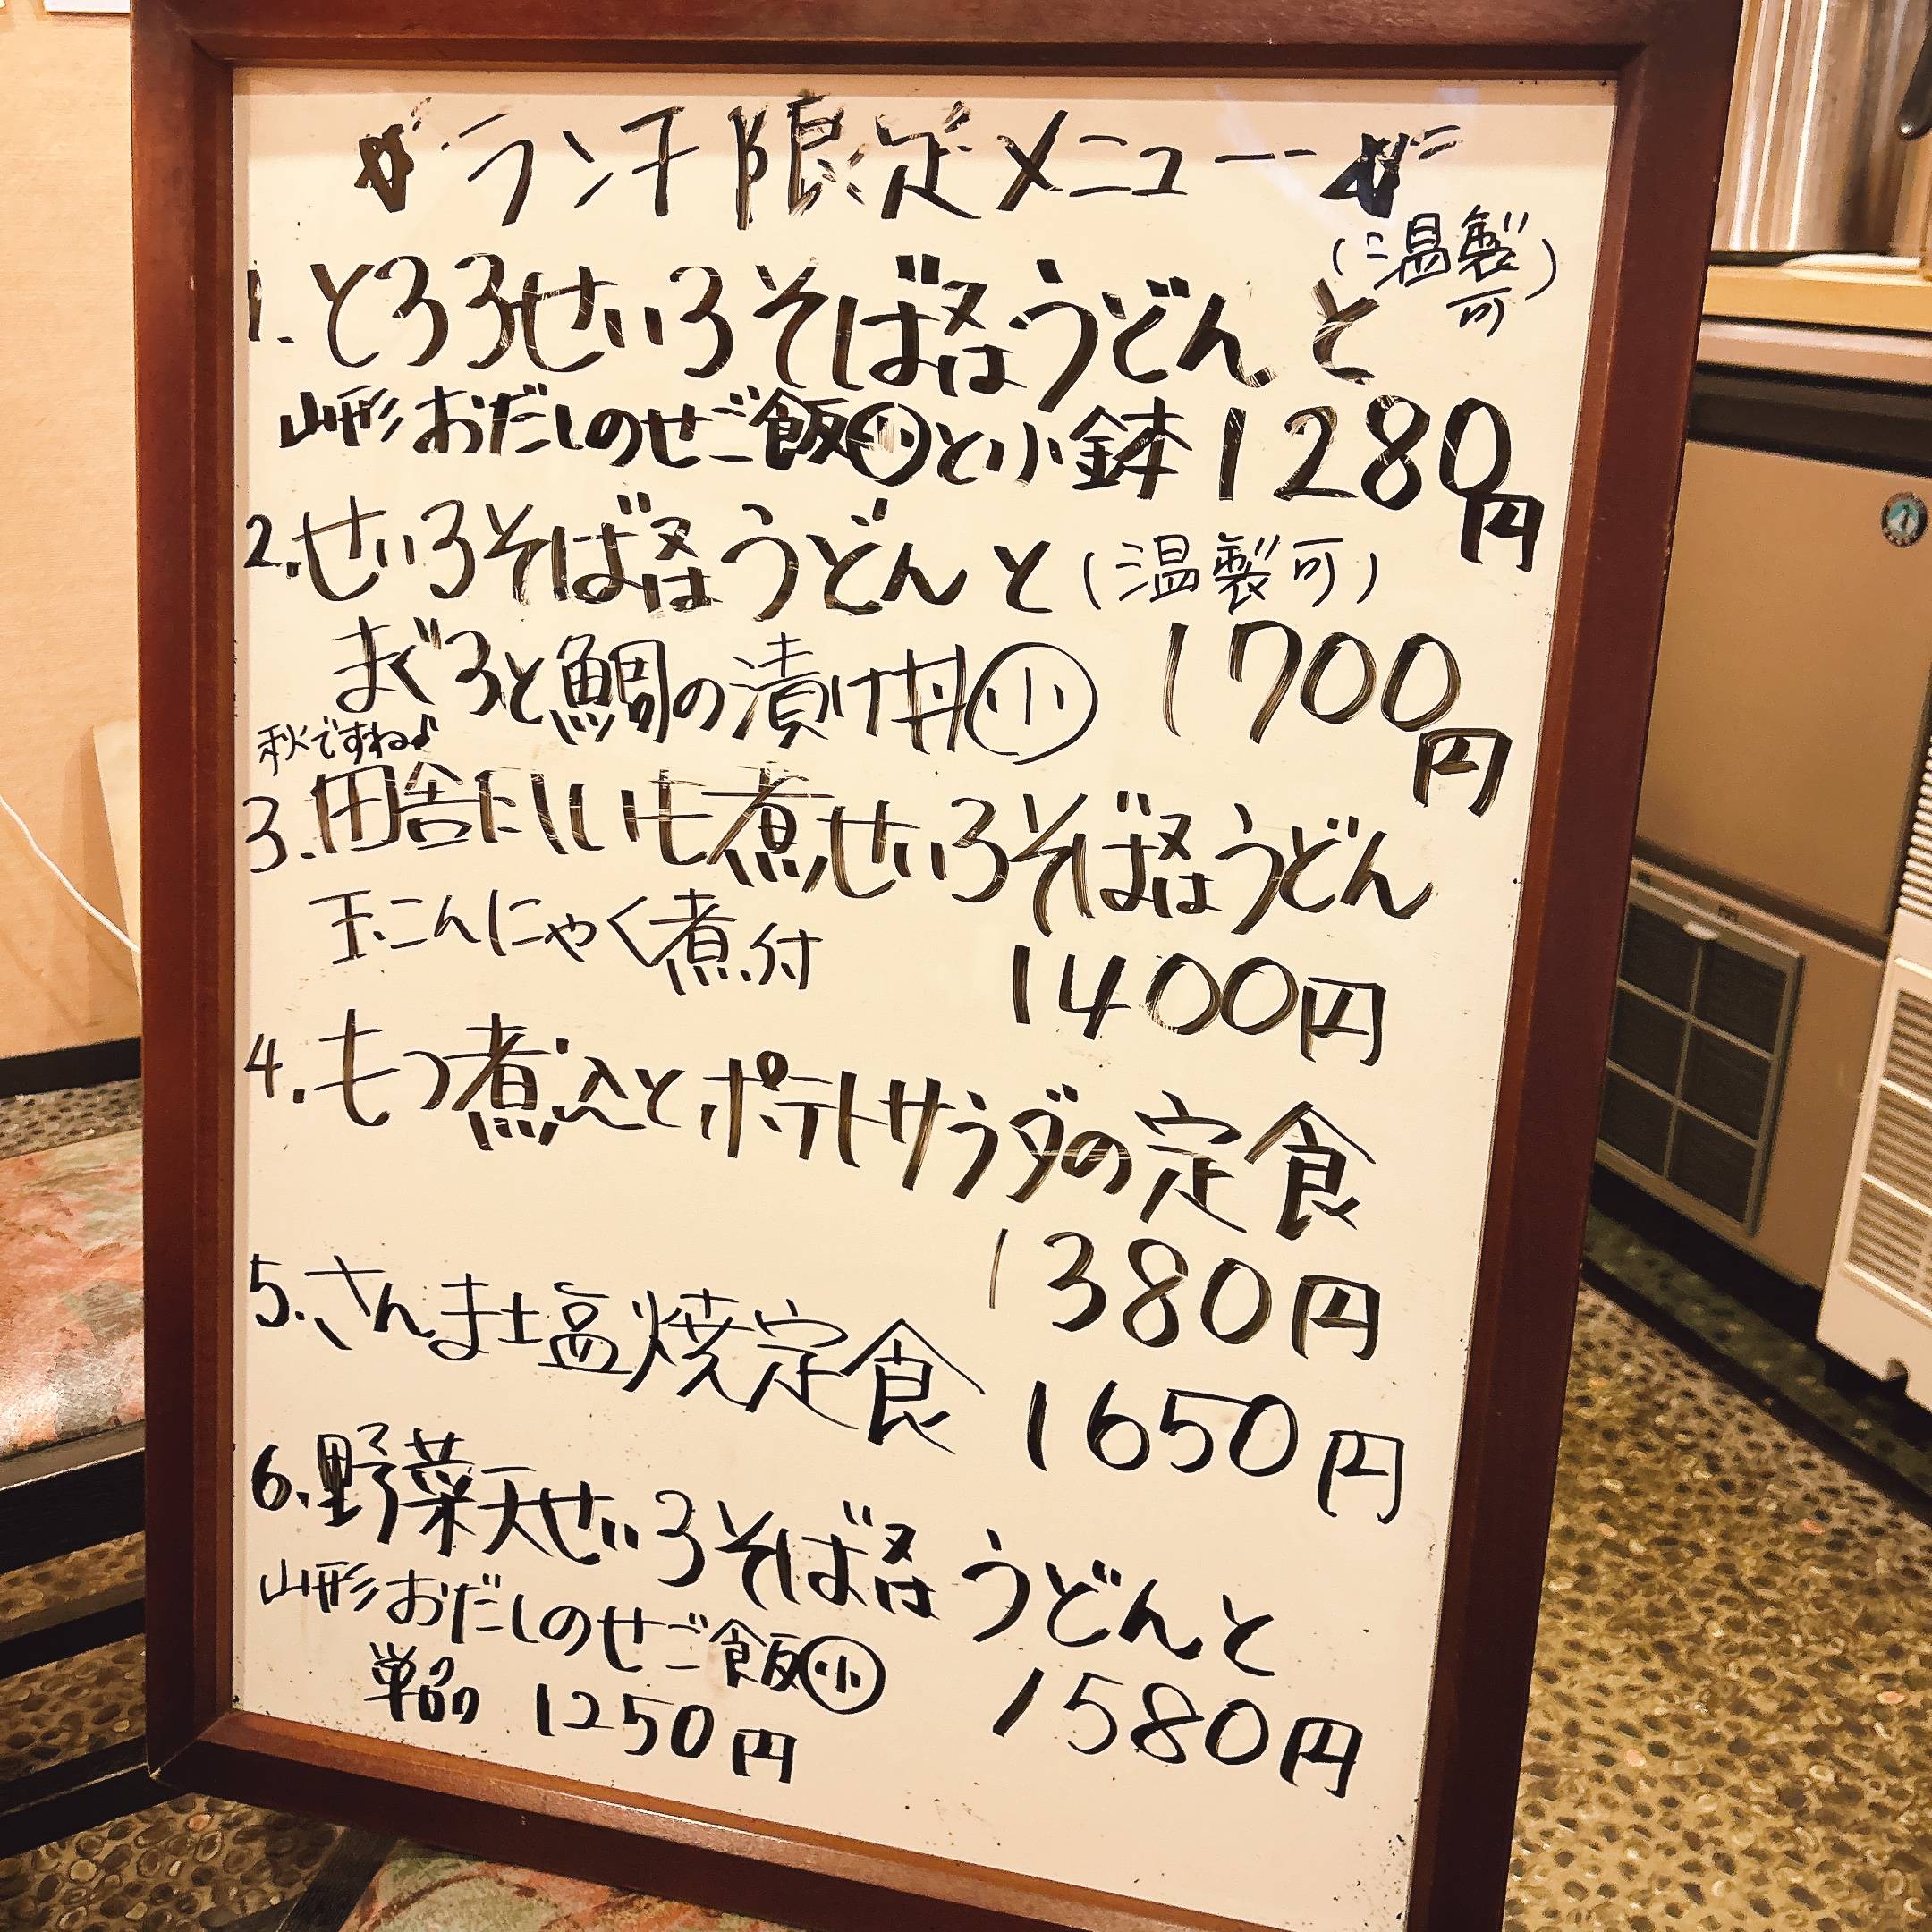 ランチ限定メニュー
(温製可)
1.とろろせいろそば又はうどんと
山形おだしのせご飯小と小鉢 1280円
2.せいろそば又はうどんと(温製可)
まぐろと鯛の漬け丼小 1700円
秋ですね♪
3.田舎にしいも煮せいろそば又はうどん
玉こんにゃく煮付 1400円
4.もつ煮込とポテトサラダの定食
1380円
5.さんま塩焼定食 1650円
6.野菜天せいろそば又はうどんと
山形おだしのせご飯小 1580円
単品 1250円